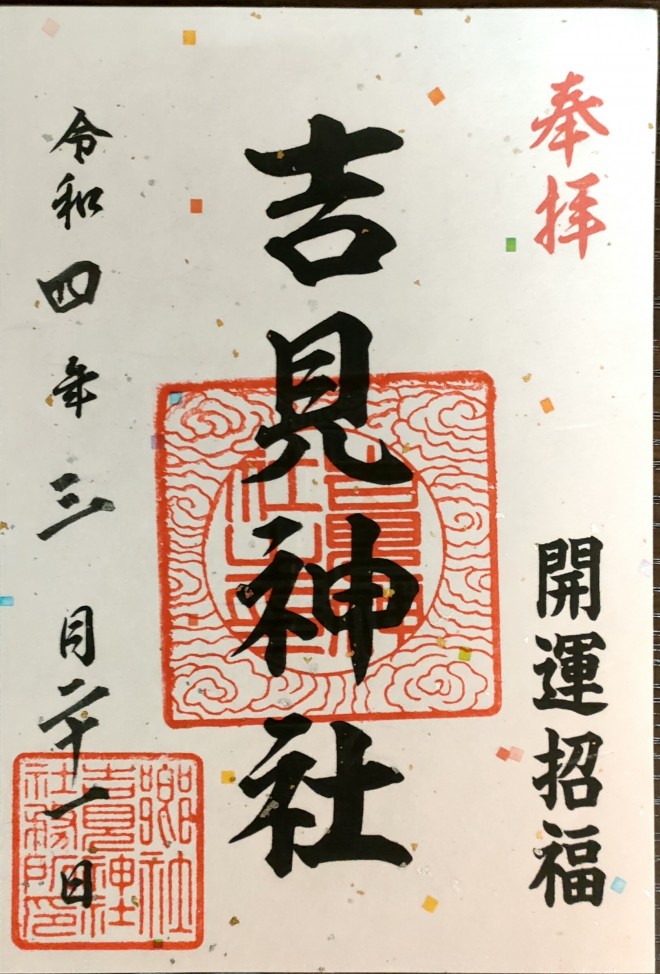 奉拝
開運招福
吉見神社
令和四年三月二十一日
郷社
吉見神社
社務所印